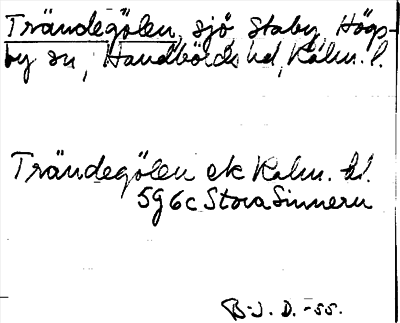 Trändegölen, sjö, Staby, Högs-
by sn, Handbörds hd, Kalm. l.
Trändegölen ek Kalm. bl.
5g6c Stora Sinnern
B. J. D. -55.